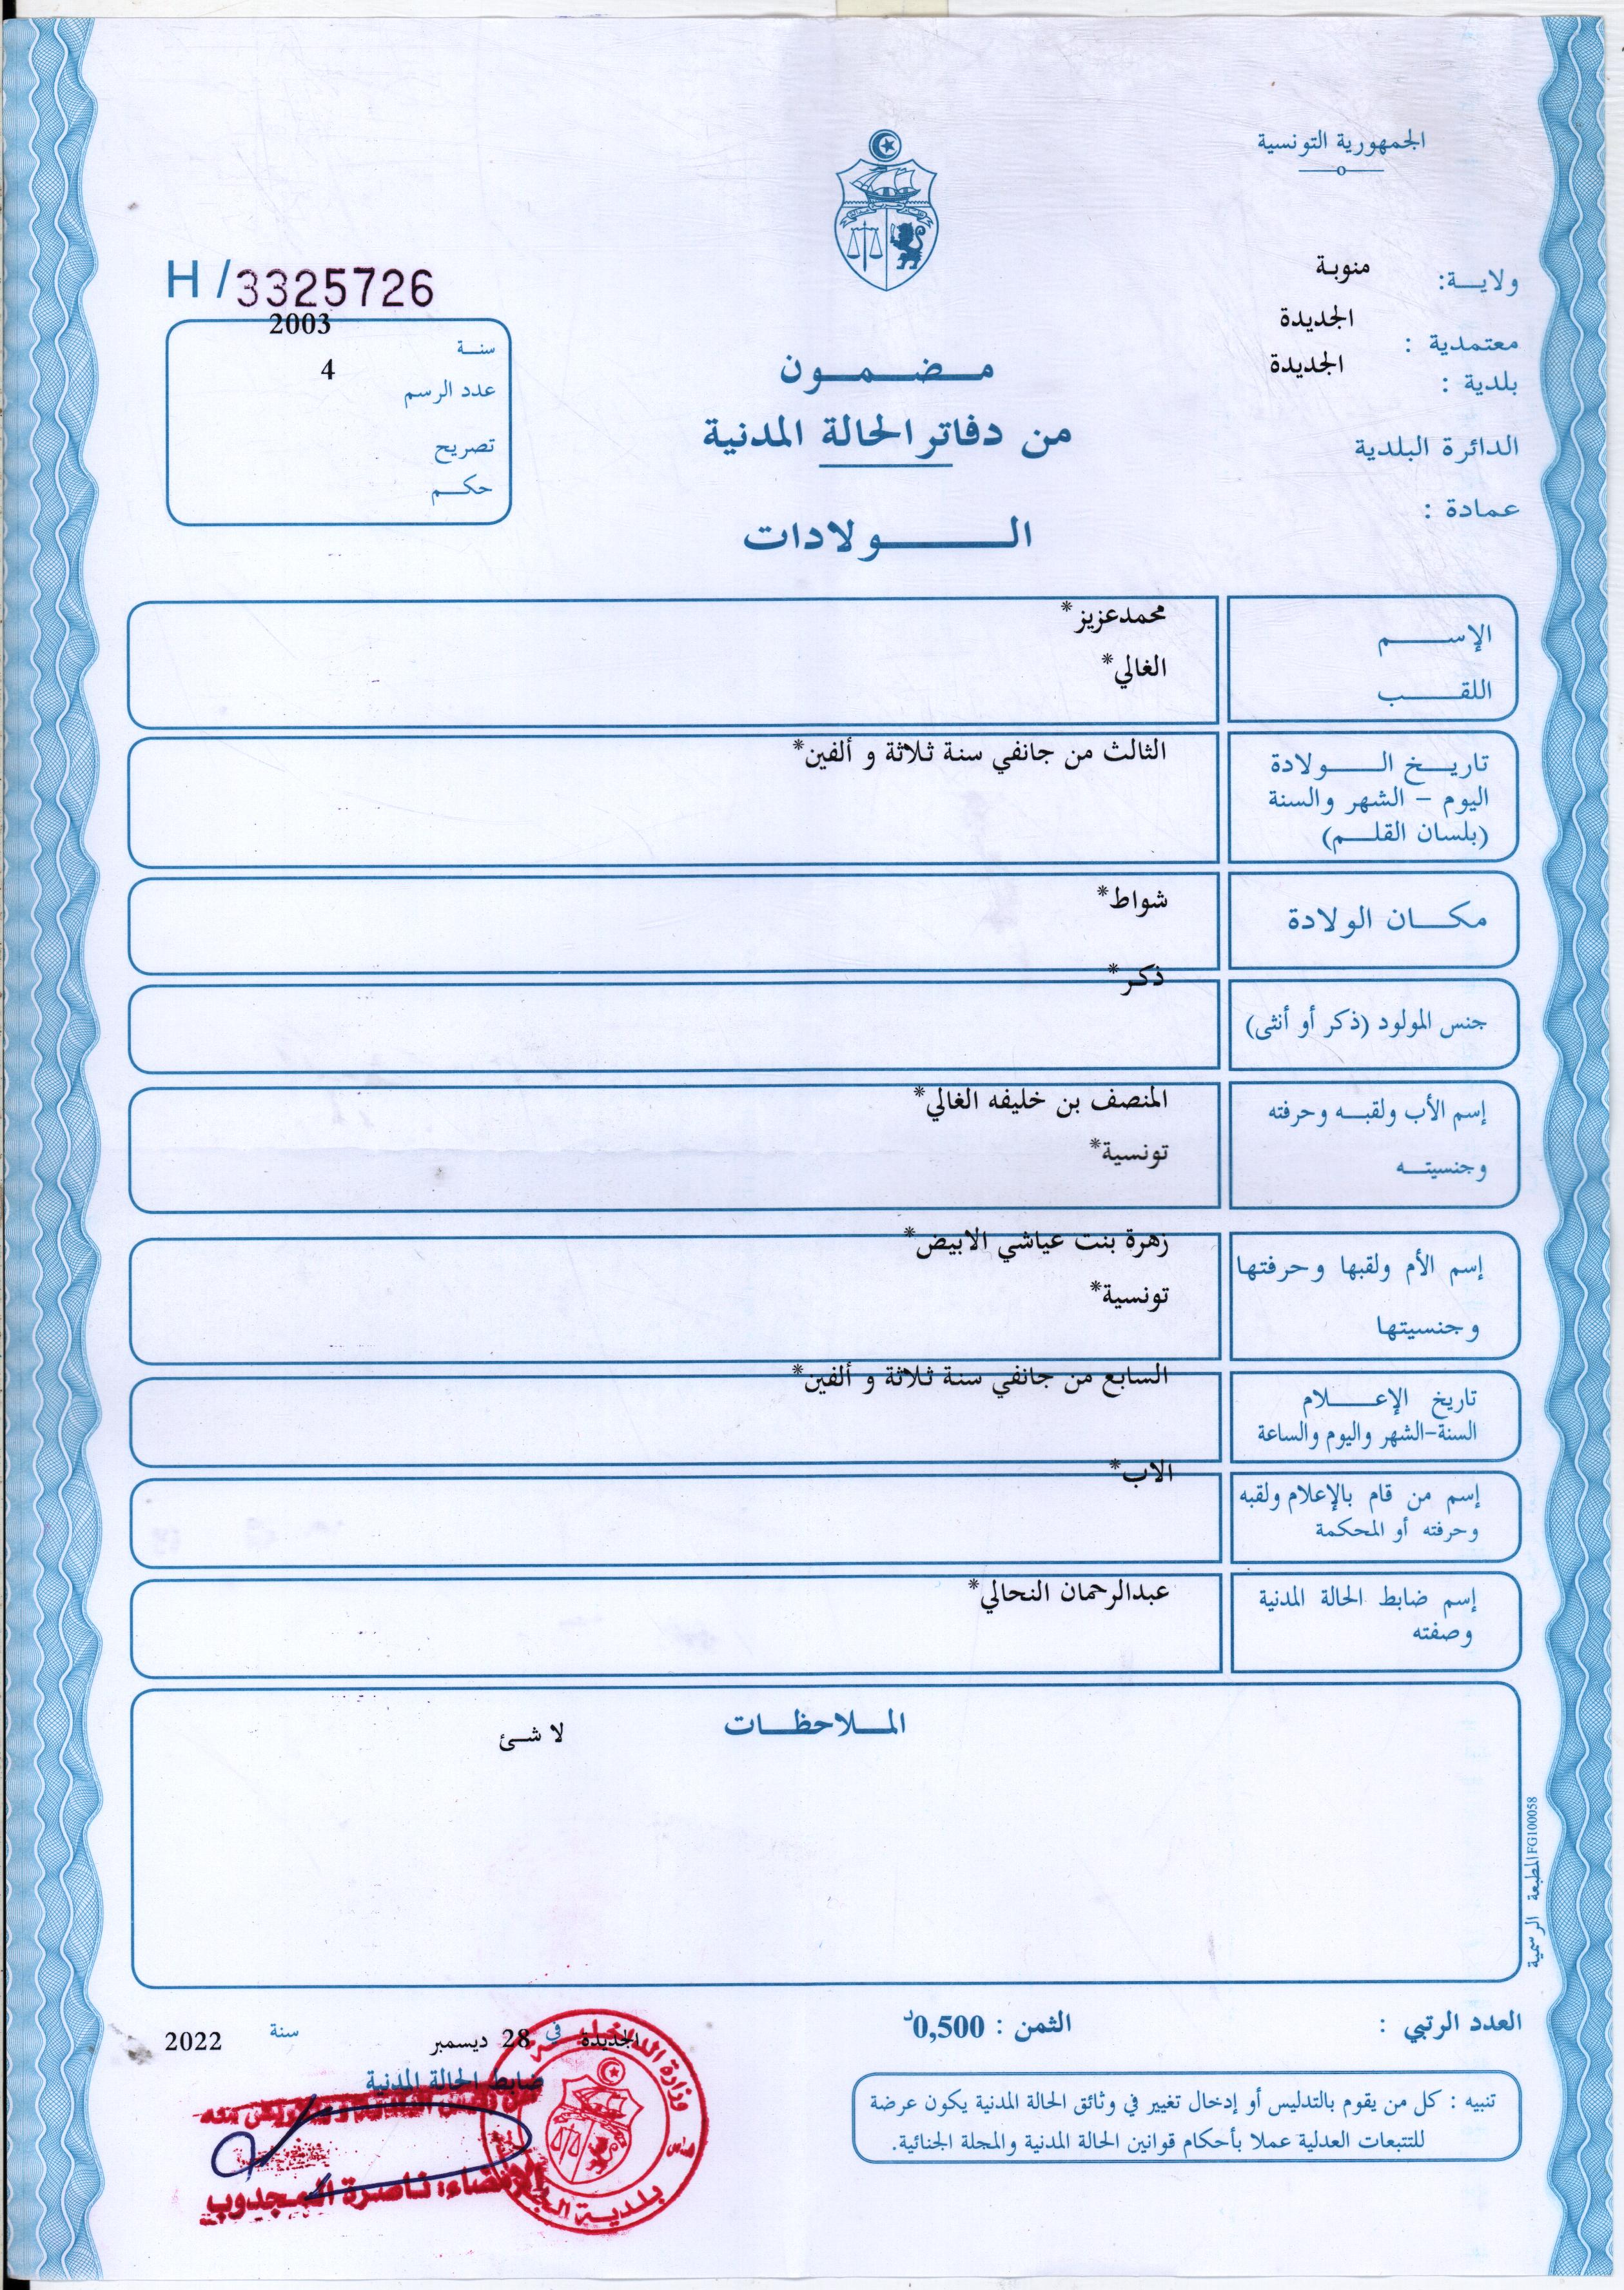 الجمهورية التونسية
ولايــة: منوبة
معتمدية : الجديدة
بلدية : الجديدة
الدائرة البلدية
عمادة :
H / 3325726
سنة 2003
عدد الرسم 4
تصريح
حكم
مضمون
من دفاتر الحالة المدنية
الولادات
الإسم محمدعزيز*
اللقب الغالي*
تاريخ الولادة الثالث من جانفي سنة ثلاثة و ألفين*
اليوم - الشهر والسنة
(بلسان القلم)
مكان الولادة شواط*
جنس المولود (ذكر أو أنثى) ذكر*
إسم الأب ولقبه وحرفته المنصف بن خليفه الغالي*
وجنسيته تونسية*
إسم الأم ولقبها وحرفتها زهرة بنت عياشي الابيض*
وجنسيتها تونسية*
تاريخ الإعلام السابع من جانفي سنة ثلاثة و ألفين*
السنة-الشهر واليوم والساعة
إسم من قام بالإعلام ولقبه الاب*
وحرفته أو المحكمة
إسم ضابط الحالة المدنية عبدالرحمان النحالي*
وصفته
الملاحظات
لا شئ
المطبعة الرسمية FG100058
العدد الرتبي :
الثمن : 0,500د
الجديدة في 28 ديسمبر سنة 2022
ضابط الحالة المدنية
الإمضاء: ناصرة المجدوب
تنبيه : كل من يقوم بالتدليس أو إدخال تغيير في وثائق الحالة المدنية يكون عرضة
للتتبعات العدلية عملا بأحكام قوانين الحالة المدنية والمجلة الجنائية.